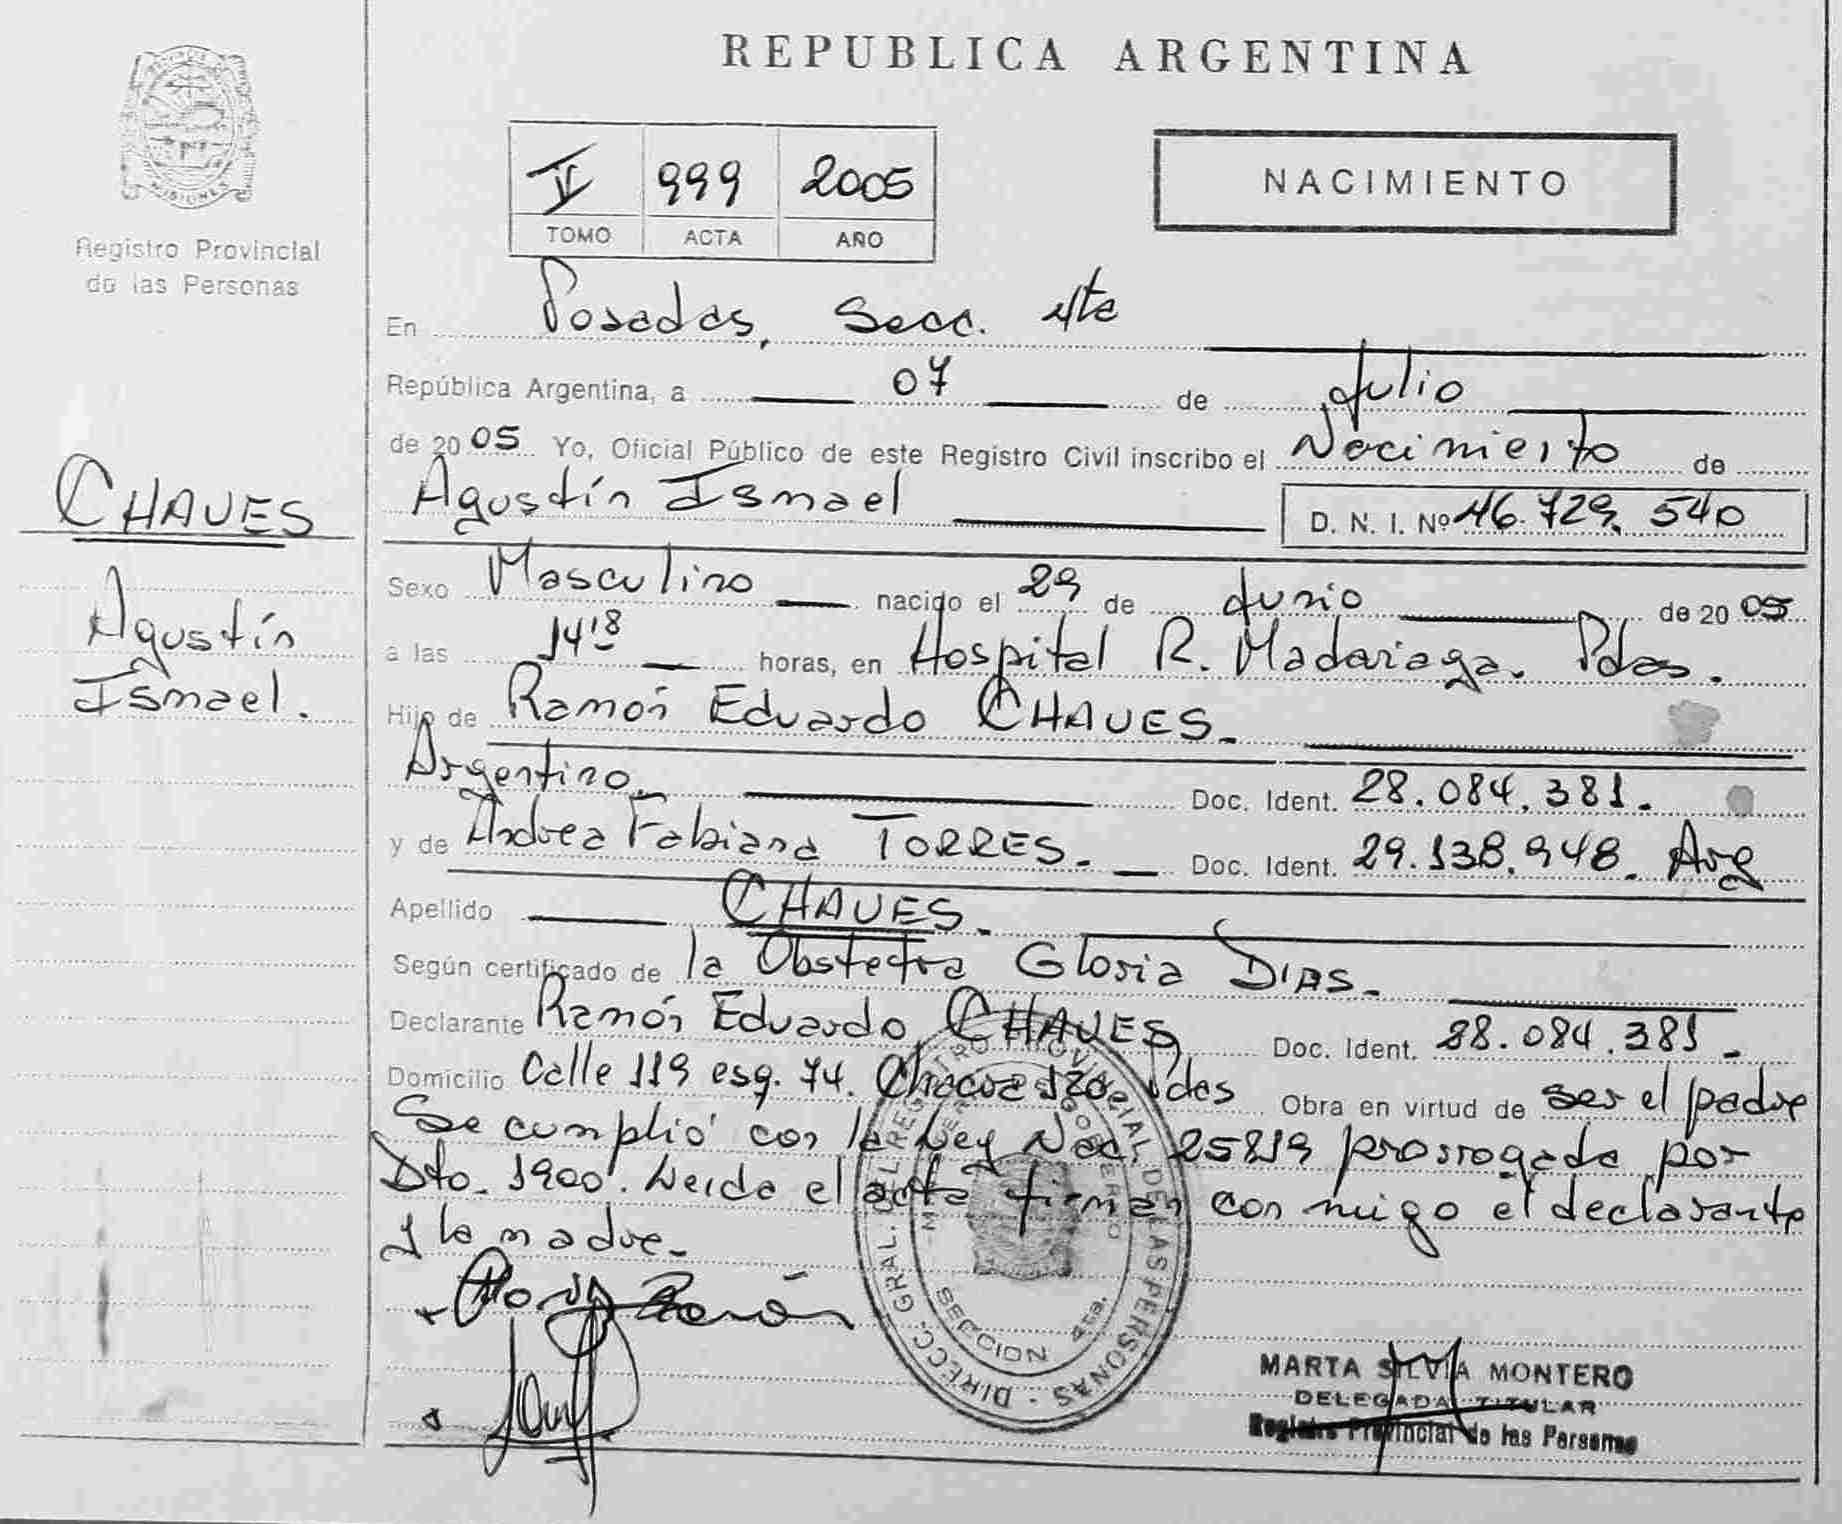 REPUBLICA ARGENTINA
PROVINCIA DE MISIONES
Registro Provincial
de las Personas
V 999 2005
TOMO ACTA AÑO
NACIMIENTO
En Posadas, Secc. 4ta
República Argentina, a 07 de Julio
de 2005 Yo, Oficial Público de este Registro Civil inscribo el Nacimiento de
Agustín Ismael D. N. I. Nº 46.729.540
CHAVES
Agustín
Ismael.
Sexo Masculino nacido el 29 de Junio de 2005
a las 14:18 horas, en Hospital R. Madariaga. Pdas.
Hijo de Ramón Eduardo CHAVES.
Argentino. Doc. Ident. 28.084.381.
y de Andrea Fabiana TORRES. Doc. Ident. 29.138.948. Arg
Apellido CHAVES.
Según certificado de la Obstetra Gloria DIAS.
Declarante Ramón Eduardo CHAVES Doc. Ident. 28.084.381.
Domicilio Calle 119 esq. 74. Chacra 120. Pdas Obra en virtud de ser el padre
Se cumplió con la Ley Nac. 25819 prorrogada por
Dto. 1900. Leida el acta firman con migo el declarante
y la madre.
DIRECC. GRAL. DEL REGISTRO PROVINCIAL DE LAS PERSONAS
SECCION 4ta.
MARTA SILVIA MONTERO
DELEGADA TITULAR
Registro Provincial de las Personas